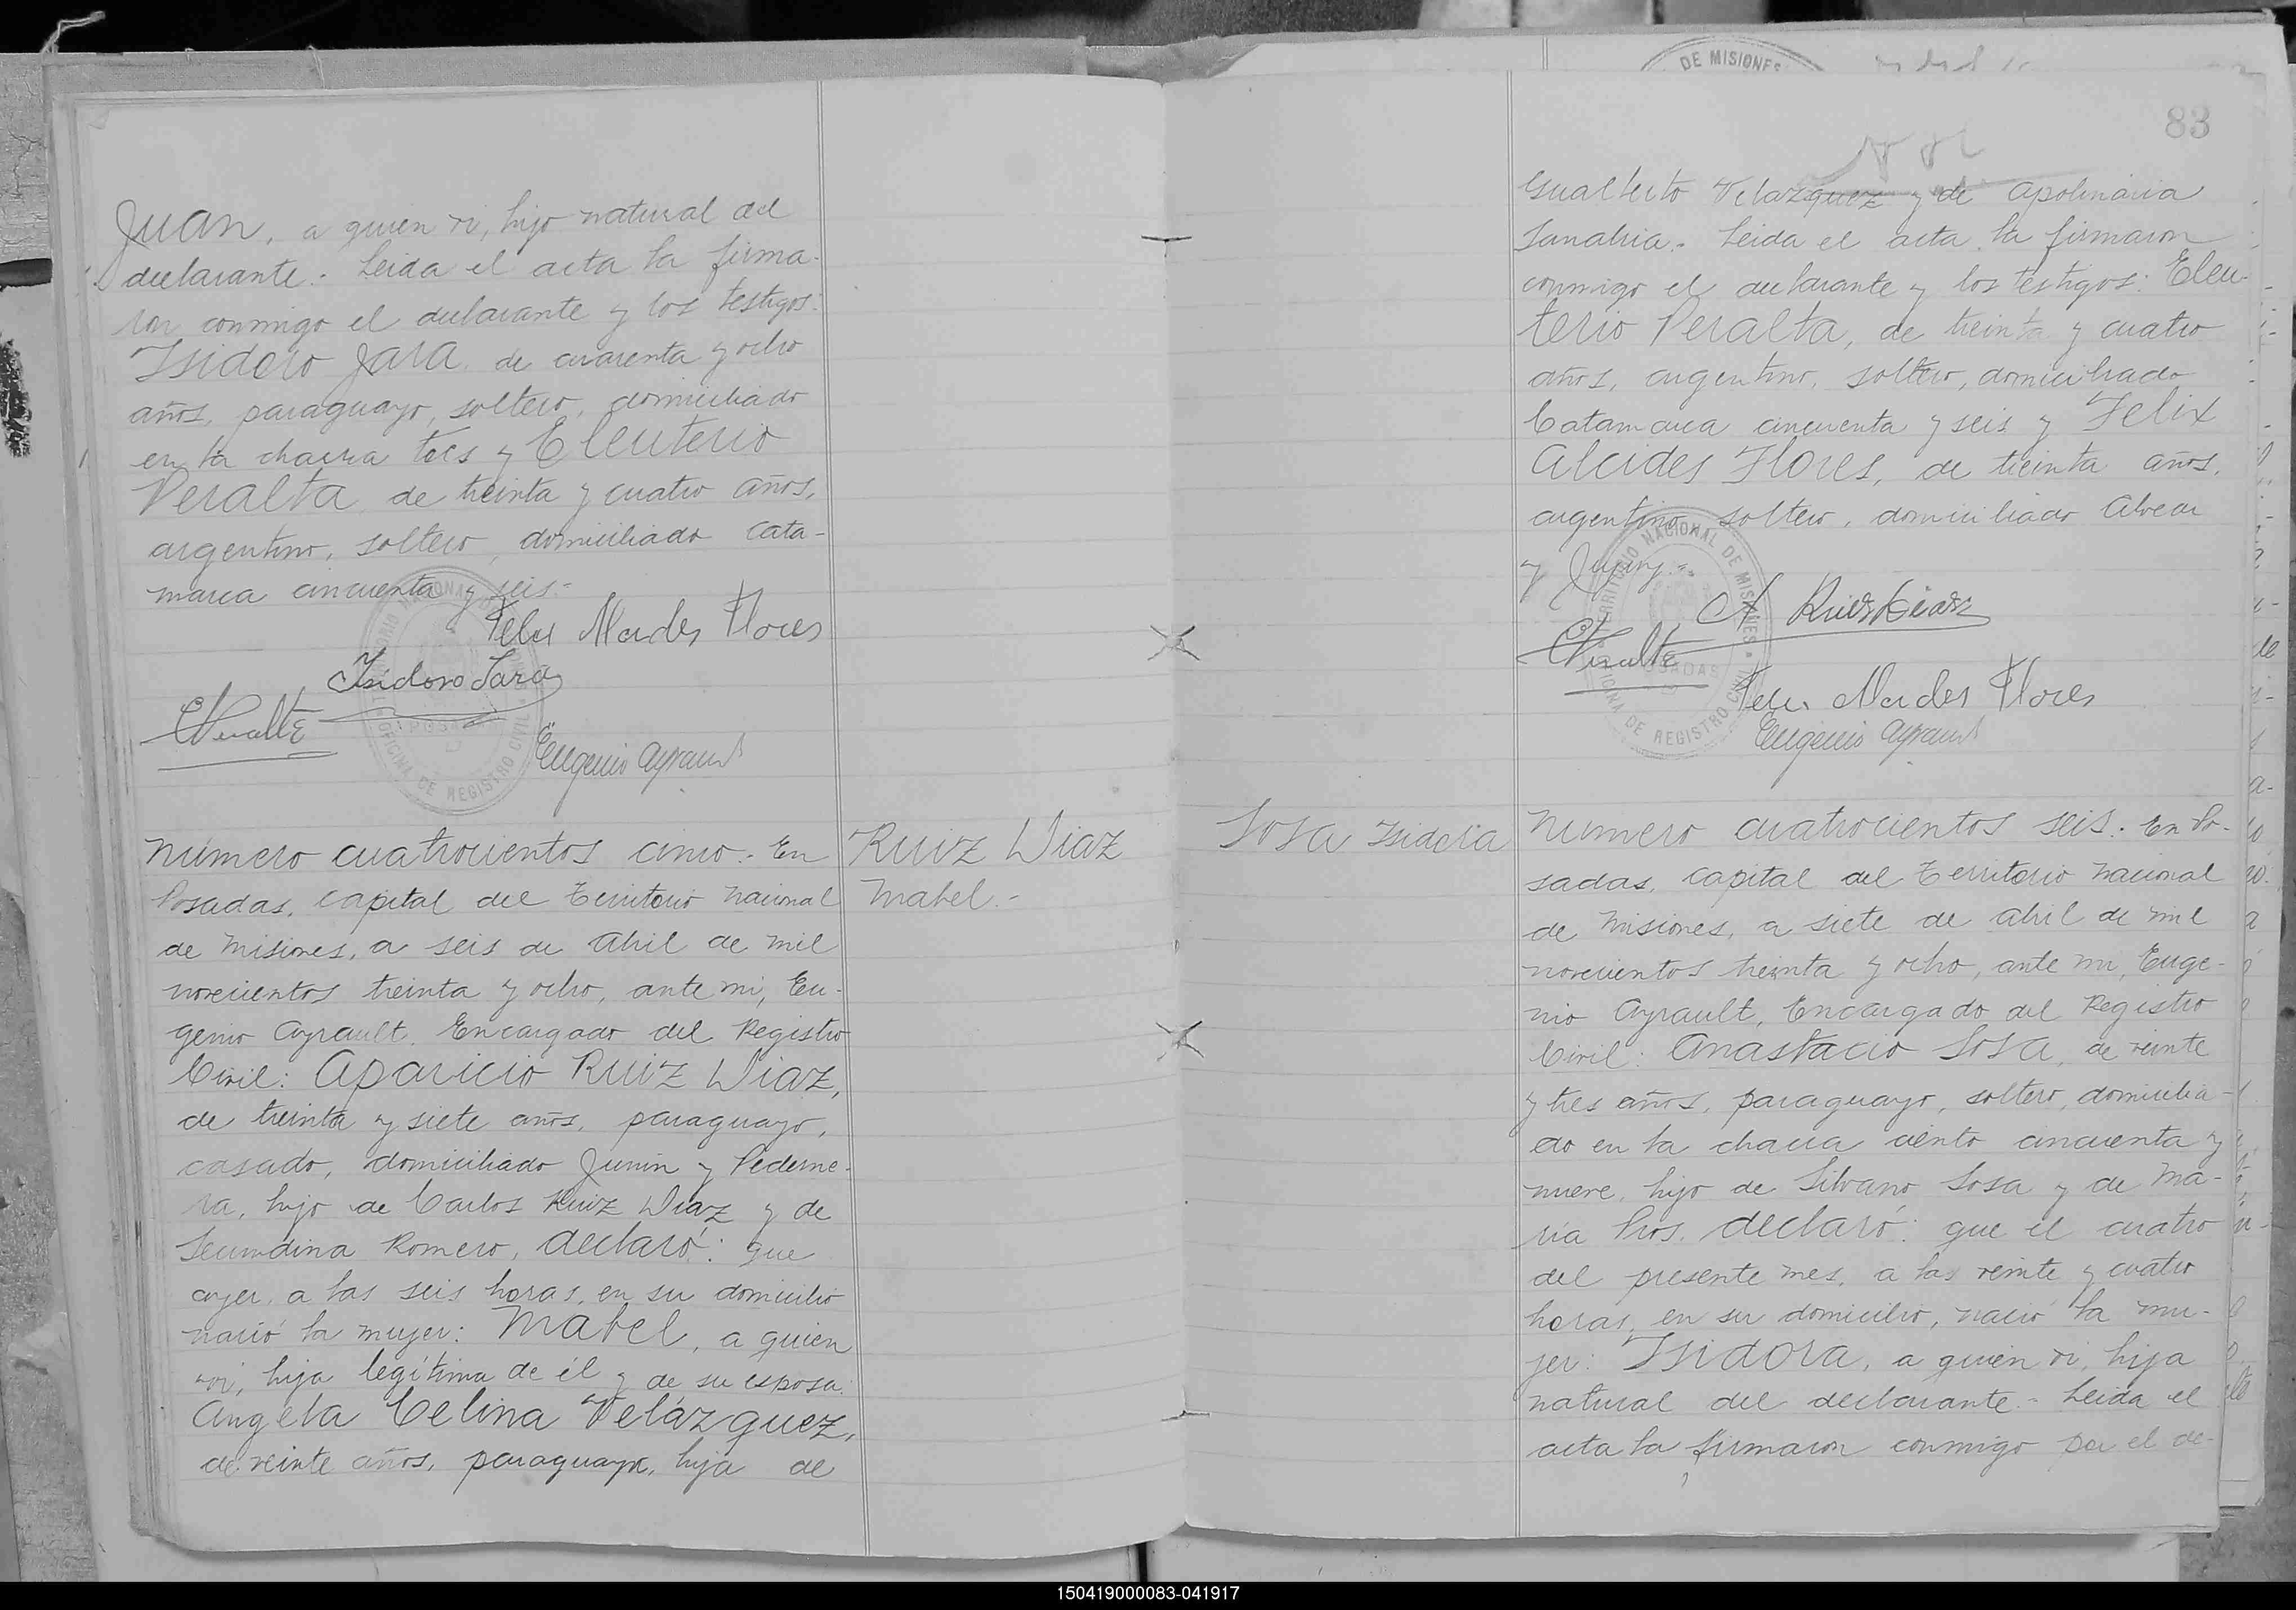 Juan, a quien vi, hijo natural del
declarante.- Leida el acta la firma-
ron conmigo el declarante y los testigos:
Isidoro Jara, de cuarenta y ocho
años, paraguayo, soltero, domiciliado
en la chacra tres y Eleuterio
Peralta, de treinta y cuatro años,
argentino, soltero, domiciliado Cata-
marca cincuenta y seis.-
Felix Alcides Flores
Isidoro Jara
EPeralta
Eugenio Ayrault
Número cuatrocientos cinco.- En
Posadas, capital del Territorio Nacional
de Misiones, a seis de Abril de mil
novecientos treinta y ocho, ante mi, Eu-
genio Ayrault, Encargado del Registro
Civil: Aparicio Ruiz Diaz,
de treinta y siete años, paraguayo,
casado, domiciliado Junin y Pederne-
ra, hijo de Carlos Ruiz Diaz y de
Secundina Romero, declaró: que
ayer, a las seis horas, en su domicilio
nació la mujer: Mabel, a quien
vi, hija legítima de él y de su esposa:
Angela Celina Velázquez,
de veinte años, paraguaya, hija de
Ruiz Diaz
Mabel.-
DE MISIONES
83
Gualberto Velazquez y de Apolinaria
Sanabria.- Leida el acta la firmaron
conmigo el declarante y los testigos: Eleu-
terio Peralta, de treinta y cuatro
años, argentino, soltero, domiciliado
Catamarca cincuenta y seis y Felix
Alcides Flores, de treinta años,
argentino, soltero, domiciliado Alvear
y Jujuy.-
TERRITORIO NACIONAL DE MISIONES
POSADAS
OFICINA DE REGISTRO CIVIL
A Ruiz Diaz
EPeralta
Felix Alcides Flores
Eugenio Ayrault
Sosa Isidora
Numero cuatrocientos seis.- En Po-
sadas, capital del Territorio Nacional
de Misiones, a siete de Abril de mil
novecientos treinta y ocho, ante mi, Euge-
nio Ayrault, Encargado del Registro
Civil: Anastacio Sosa, de veinte
y tres años, paraguayo, soltero, domicilia-
do en la chacra ciento cincuenta y
nueve, hijo de Silvano Sosa y de Ma-
ria Rios, declaró: que el cuatro
del presente mes, a las veinte y cuatro
horas, en su domicilio, nació la mu-
jer: Isidora, a quien vi, hija
natural del declarante.- Leida el
acta la firmaron conmigo por el de-
150419000083-041917